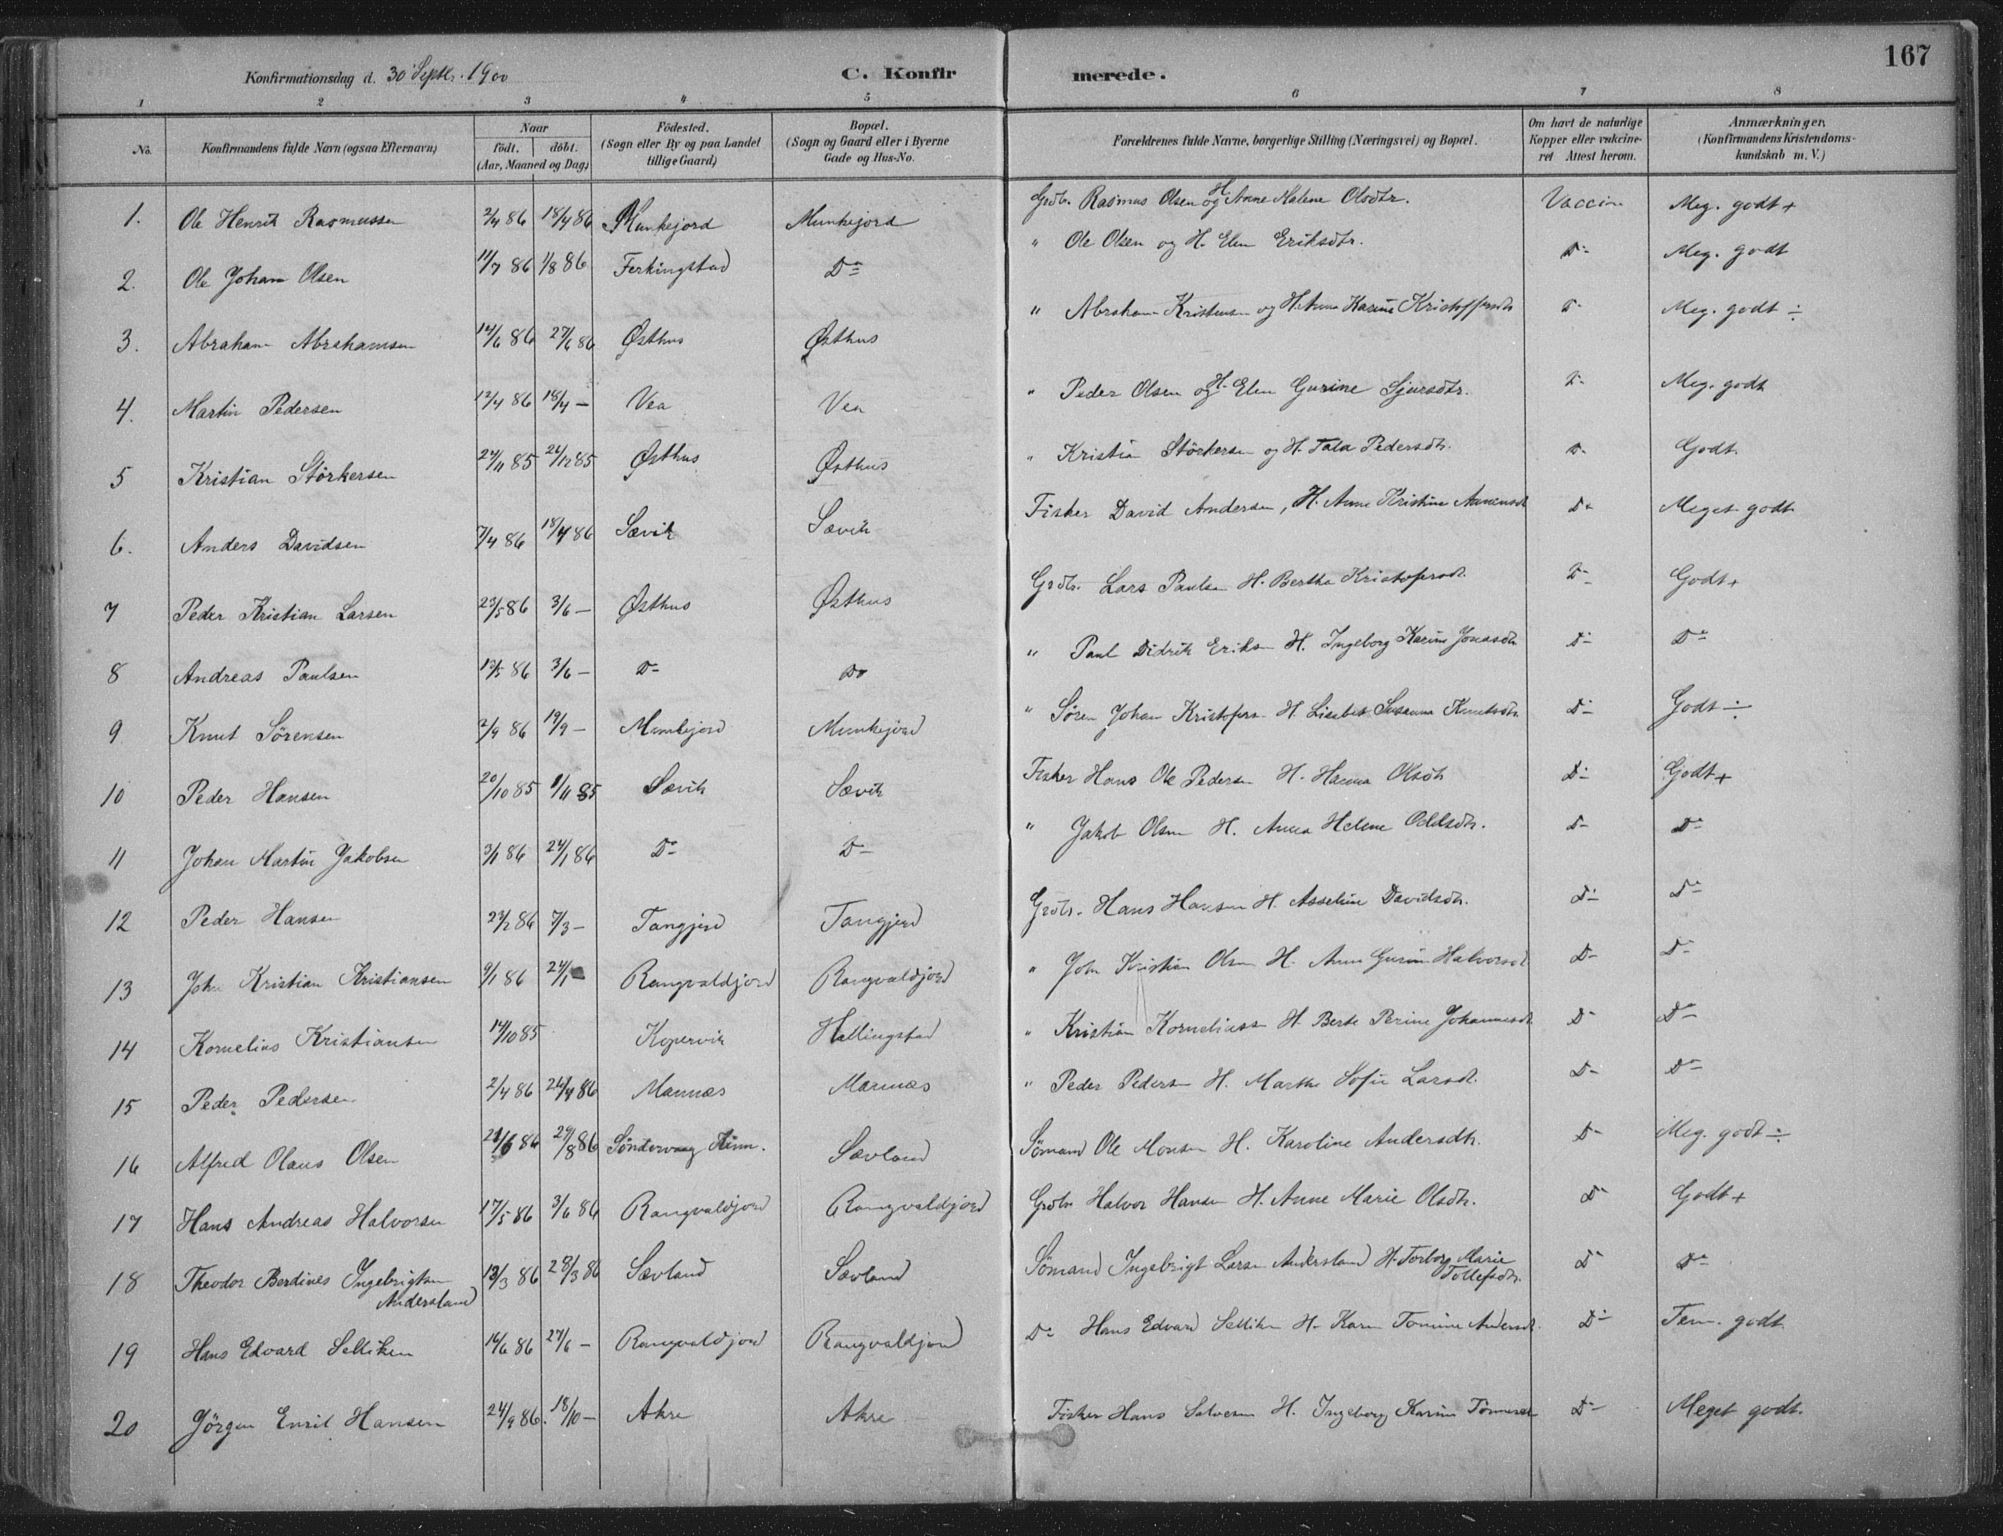 167
Konfirmationsdag d. 30 Septbr. 1900
C. Konfirmerede.
1 2 3 4 5 6 7 8
No. Konfirmandens fulde Navn (ogsaa Efternavn) Naar födt. döbt. (Aar, Maaned og Dag) Födested. (Sogn eller By og paa Landet tillige Gaard) Bopæl. (Sogn og Gaard eller i Byerne Gade og Hus-No. Forældrenes fulde Navne, borgerlige Stilling (Næringsvei) og Bopæl. Om havt de naturlige Kopper eller vakcineret Attest herom. Anmærkninger. (Konfirmandens Kristendomskundskab m. V.)
1. Ole Henrik Rasmussen 2/4 86 18/4 86 Munkejord Munkejord Grdbr. Rasmus Olsen og H. Anne Malene Olsdtr. Vaccin Meg. godt +
2. Ole Johan Olsen 11/7 86 1/8 86 Ferkingstad Do " Ole Olsen og H. Elen Eriksdtr. Do Meg. godt
3. Abraham Abrahamsen 14/6 86 27/6 86 Østhus Østhus " Abraham Kristensen og H. Anna Karine Kristoffersdtr Do Meg. godt ÷
4. Martin Pedersen 12/4 86 18/4 — Vea Vea " Peder Olsen og H. Elen Gurine Sjursdtr. Do Meg. godt
5 Kristian Störkersen 24/11 85 26/12 85 Østhus Østhus " Kristian Störkersen og H. Tala Pedersdtr. Do Godt
6. Anders Davidsen 7/4 86 18/4 86 Sævik Sævik Fisker David Andersen, H. Anne Kristine Do Meget godt
7 Peder Kristian Larsen 23/5 86 3/6 — Østhus Østhus Grdbr. Lars Paulsen H. Bertha Kristofersdt. Do Godt +
8 Andreas Paulsen 13/5 86 3/6 — Do Do " Paul Didrik Eriksen H. Ingeborg Karine Jonasdtr Do Do
9 Knut Sørensen 2/9 86 19/9 — Munkejord Munkejord " Søren Johan Kristofers. H. Lisabet Susanna Knutsdtr. Do Godt ÷
10 Peder Hansen 20/10 85 1/11 85 Sævik Sævik Fisker Hans Ole Pedersen H. Hanna Olsdtr Do Godt +
11 Johan Martin Jakobsen 3/1 86 24/1 86 Do Do " Jakob Olsen H. Anna Helene Oddsdtr. Do Do
12 Peder Hansen 23/2 86 7/3 — Tangjerd Tangjerd Grdbr. Hans Hansen H. Asseline Davidsdtr. Do Do
13 John Kristian Kristiansen 9/1 86 24/1 — Rangvaldjord Rangvaldjord " John Kristian Olsen H. Anne Gurine Halvorsdt Do Do
14 Kornelius Kristiansen 14/10 85 Kopervik Hallingstad " Kristian Korneliussen H. Berte Serine Johannesdt Do Do
15 Peder Pedersen 2/4 86 26/4 86 Mannæs Mannæs " Peder Pedersen H. Marthe Sofie Larsdt. Do Do
16 Alfred Olaus Olsen 21/6 86 29/8 86 Söndervaag Sævland Sömand Ole Monsen H. Karoline Andersdtr. Do Meg. godt ÷
17 Hans Andreas Halvorsen 17/5 86 3/6 86 Rangvaldjord Rangvaldjord Grdbr Halvor Hansen H. Anne Marie Olsdtr. Do Godt +
18 Theodor Berdines Ingebrigtsen Andersland 13/3 86 28/3 86 Sævland Sævland Sömand Ingebrigt Larsen Andersland H. Torborg Marie Tollefsdtr. Do Do
19 Hans Edvard Selliken 14/6 86 27/6 — Rangvaldjord Rangvaldjord Do Hans Edvard Selliken H. Karen Tomine Andersdt. Do Tem. godt
20 Jörgen Enril Hansen 24/9 86. 18/10 — Akre Akre Fisker Hans Salvesen H. Ingeborg Karine Tönnesdt Do Meget godt.